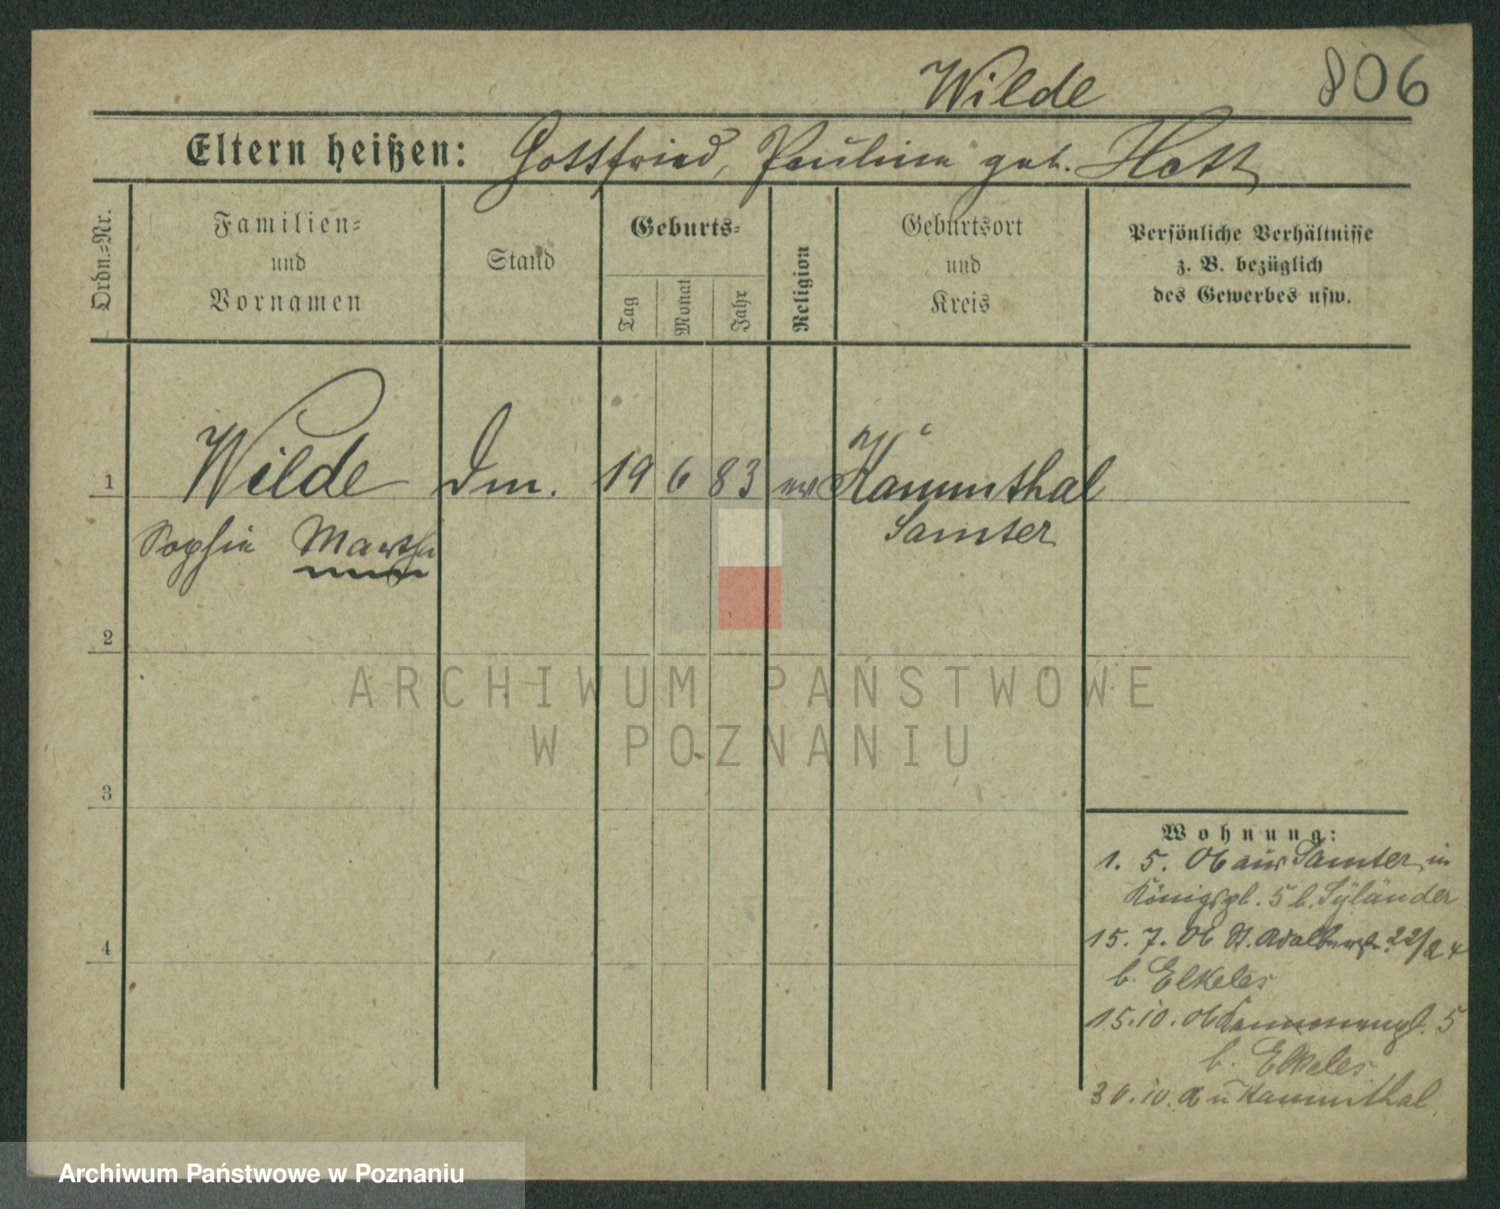 Wilde 806
Eltern heißen: Gottfried, Pauline geb. Hott
Ordn.-Nr.
Familien-
und
Vornamen
Stand
Geburts-
Tag
Monat
Jahr
Religion
Geburtsort
und
Kreis
Persönliche Verhältnisse
z. B. bezüglich
des Gewerbes usw.
1 Wilde Dm. 19 6 83 ev Kammthal
Sophie Martha Samter
2
3
4
Wohnung:
1. 5. 06 aus Samter, in
Königspl. 5 b.
15. 7. 06 St. Adalbertstr. 22/24
b. Elkeles
15. 10. 06 Kanonenpl. 5
b. Elkeles
30. 10. Kammthal
ARCHIWUM PAŃSTWOWE
W POZNANIU
Archiwum Państwowe w Poznaniu